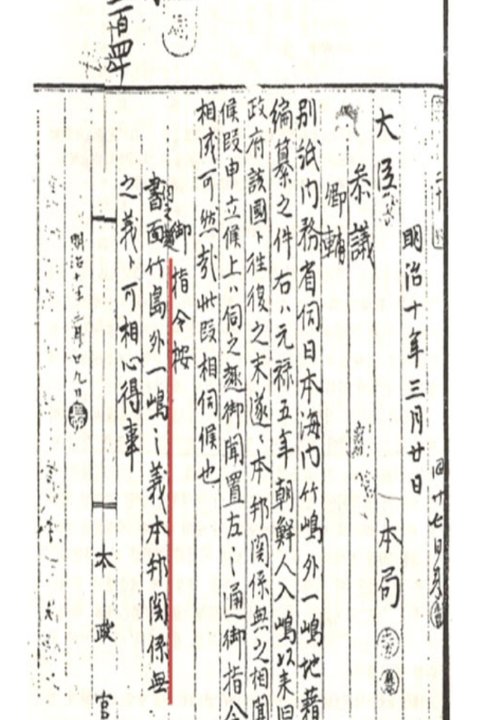 明治十年三月廿日
大臣 本局
参議
卿輔
別紙内務省伺日本海内竹嶋外一嶋地籍
編纂之件右ハ元禄五年朝鮮人入嶋以来旧
政府該国ト往復之末遂ニ本邦関係無之相聞
候段申立候上ハ伺之趣御聞置左之通御指令
相成可然哉此段相伺候也
御指令按
伺之趣
書面竹島外一嶋之義本邦関係無
之義ト可相心得事
明治十年三月廿九日
太政官